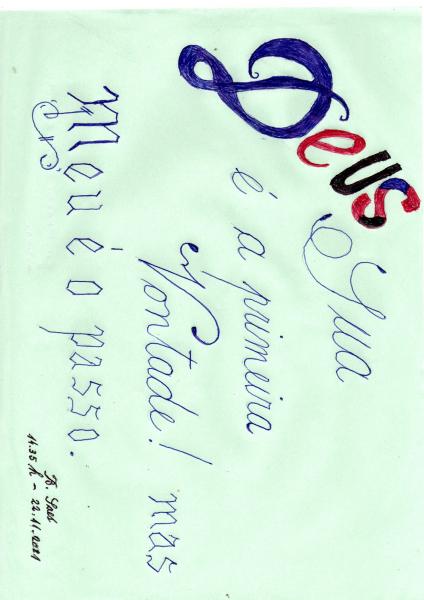 Deus
Sua
é a primeira
Vontade! mas
Meu é o passo.
14:35 h - 22.11.2021